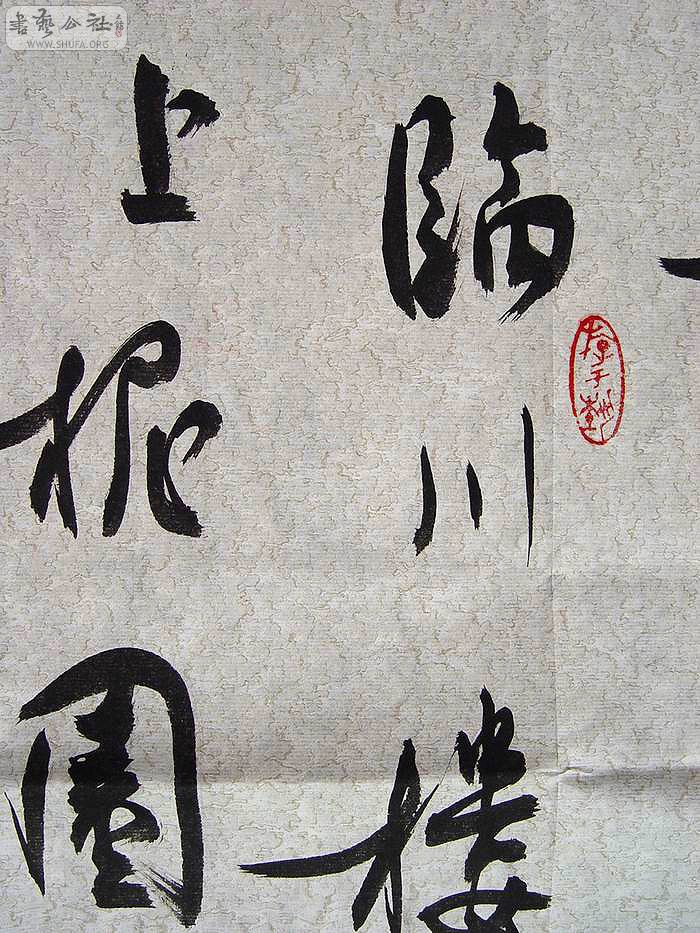 書藝公社
WWW.SHUFA.ORG
臨川樓
上柅園